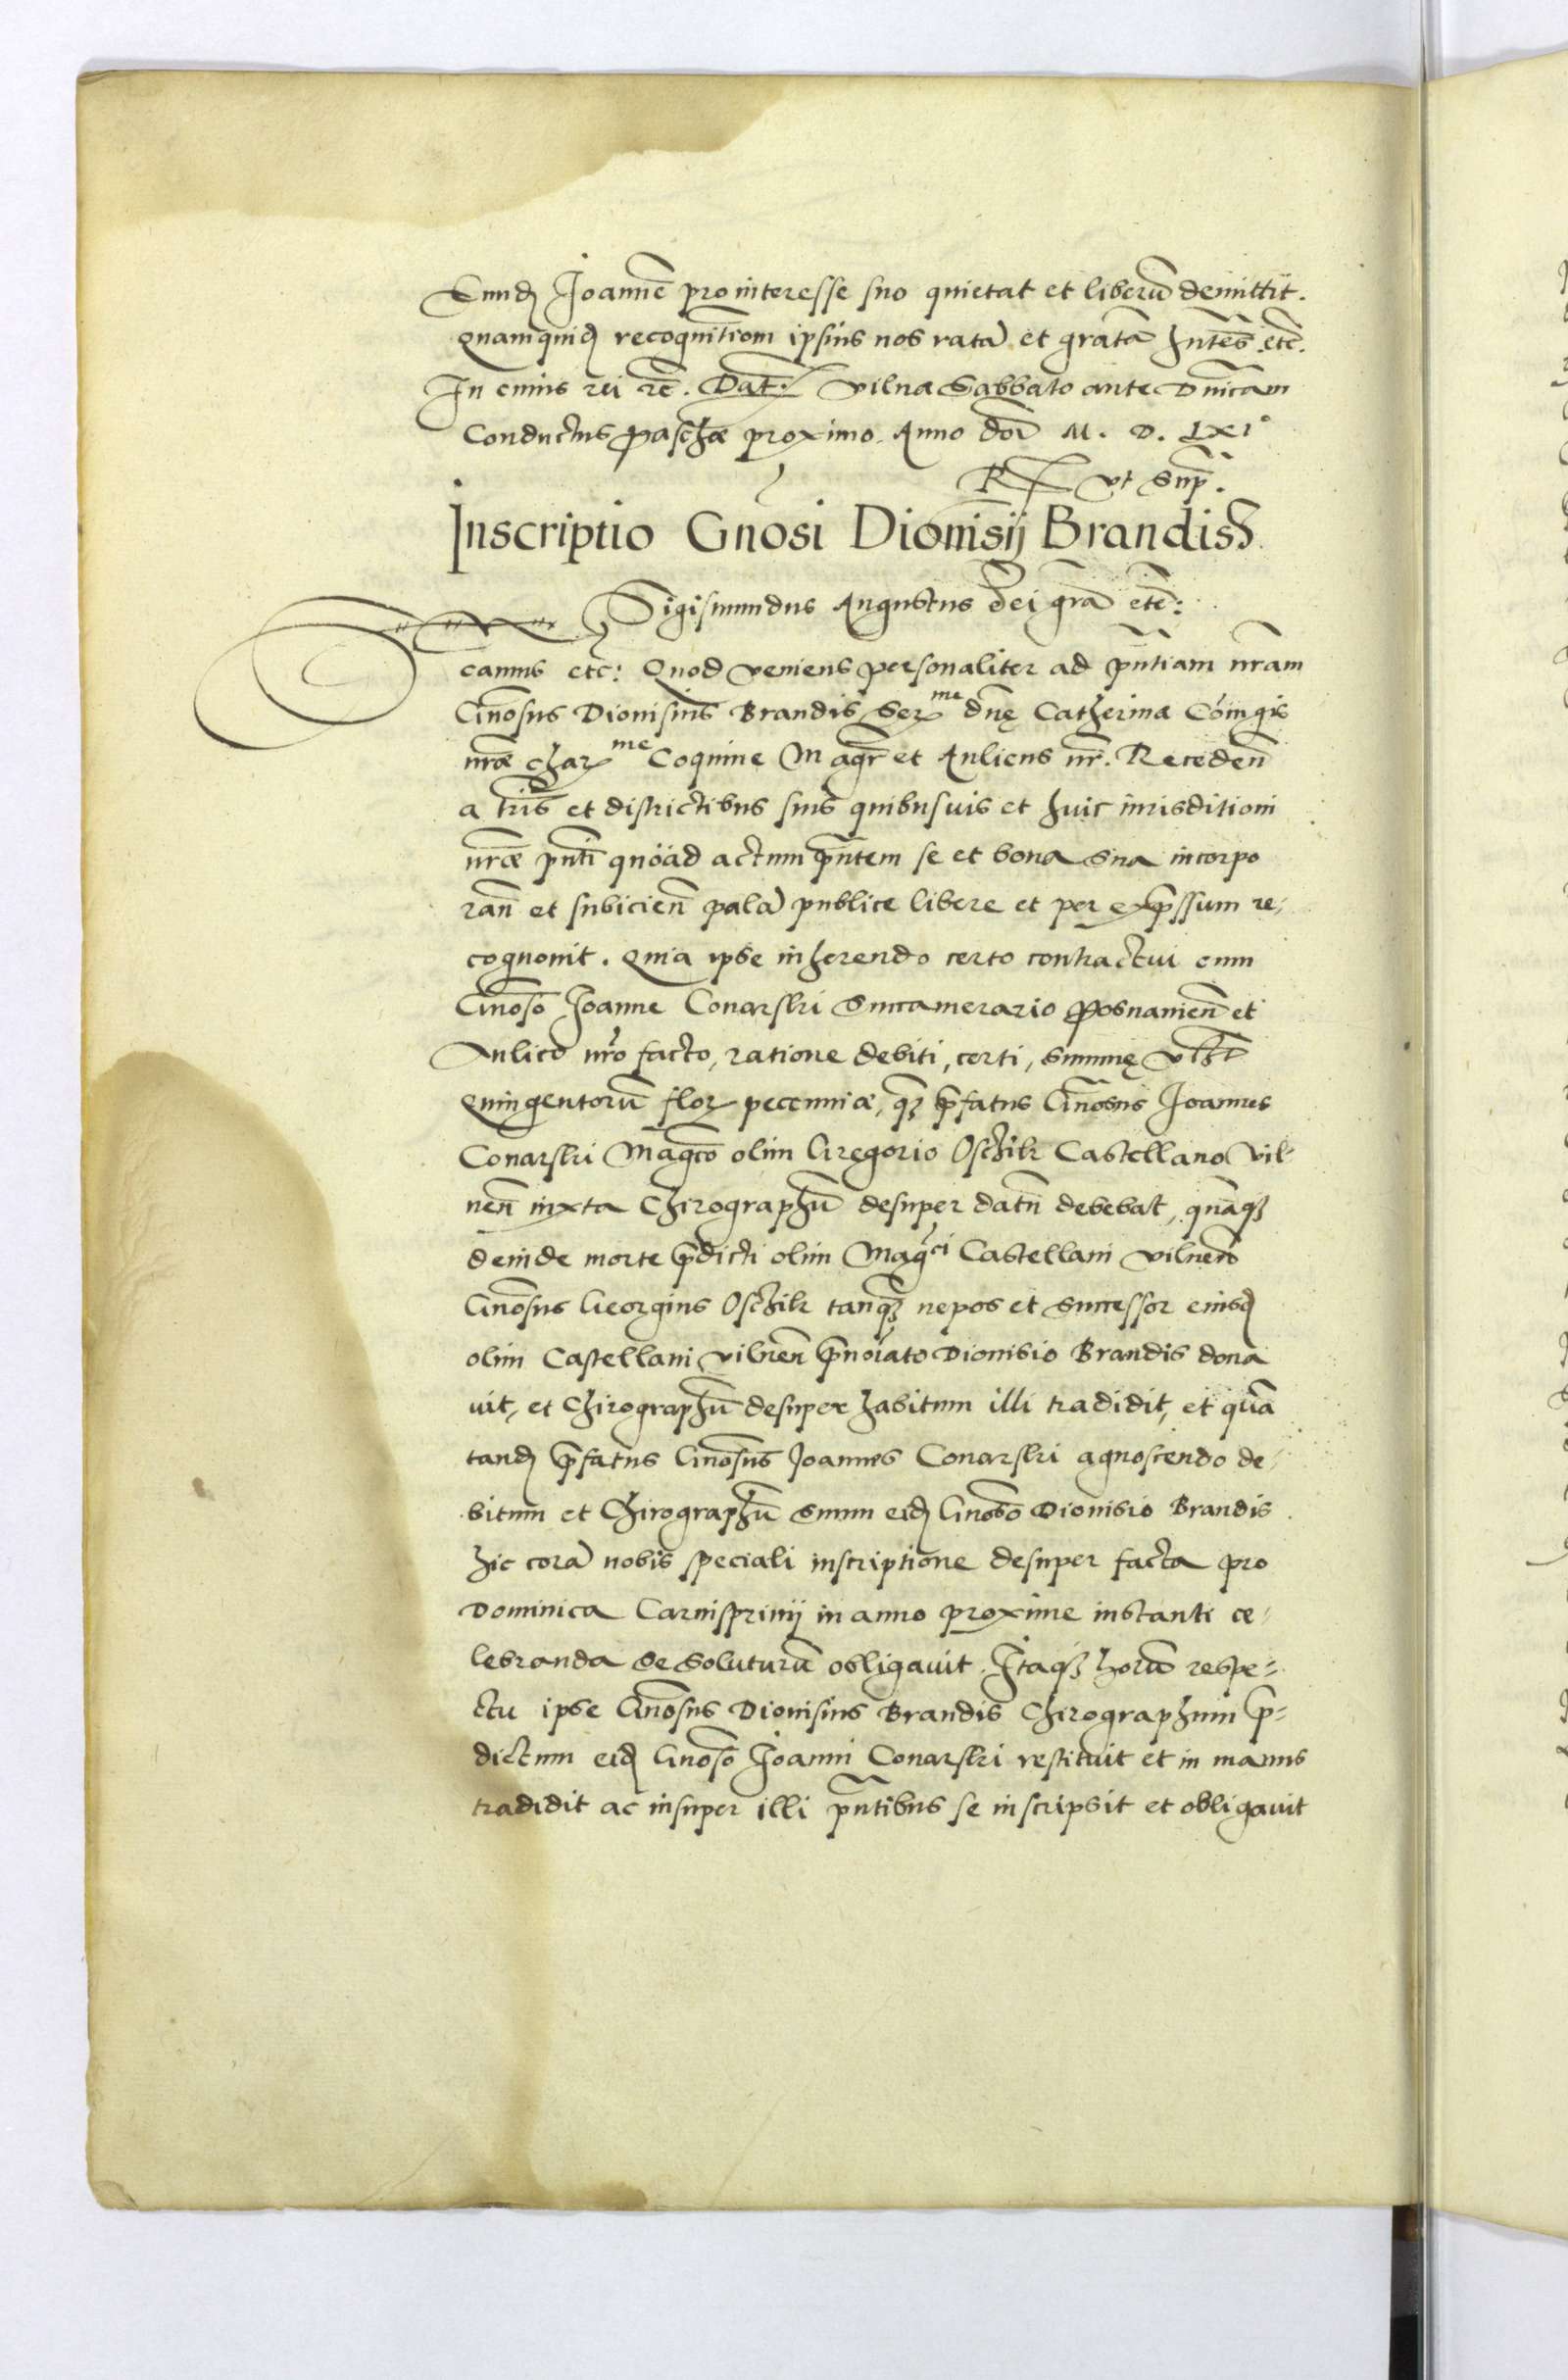 Eund Joannē pro interesse suo quietat et liberū demittit.
quamquid recognitiom ipsius nos ratā et gratā hntēs etc̄.
In cuius rei rē. Dat̄. Vilnæ Sabbato ante Dnicam
Conductus Paschæ proximo. Anno dōi M. D. LXI°
Rx vt sup̄.
Inscriptio Gnosi Dionisij Brandis
Sigismundus Augustus Dei grā etc̄:
camus etc: Quod veniens personaliter ad pn̄tiam nr̄am
Gnōsus Dionisius Brandis Ser^me dnę Catherinæ Cōingis
nr̄æ char^me Coquine Magr̄ et Aulicus nr̄. Receden̄
a tris̄ et districtibus suis quibusuis et huic iurisditioni
nr̄æ pn̄ti quoad actum pn̄tem se et bona sua incorpo
ran̄ et subicien̄ palā publice libere et per exp̄ssum re,
cognouit. Quia ipse inherendo certo contractui cum
Gnōso Joanne Conarski Succamerario Posnanien̄ et
Aulico nr̄o facto, ratione debiti, certi, summę
Quingentorū flor pecunniæ, qz p̄fatus Gnōsus Joannes
Conarski Magco olim Gregorio Oschik Castellano Vil-
nen̄ iuxta Chirographū desuper datū debebat, quāqz
deinde morte p̄dicti olim Mag^ci Castellani Vilnen̄
Gnōsus Georgius Oschik tanqz nepos et successor eiusd
olim Castellani Vilnen̄ p̄noiato Dionisio Brandis dona
uit, et Chirographū desuper habitum illi tradidit, et quā
tand p̄fatus Gnōsus Joannes Conarski agnoscendo de-
bitum et Chirographū suum eid Gnōso Dionisio Brandis
hic corā nobis speciali inscriptione desuper facta pro
Dominica Carnispriuij in anno proxime instanti ce-
lebranda se soluturū obligauit. Itaqz horū respe-
ctu ipse Gnōsus Dionisius Brandis Chirographum p̄-
dictum eid Gnōso Joanni Conarski restituit et in manus
tradidit ac insuper illi pn̄tibus se inscripsit et obligauit